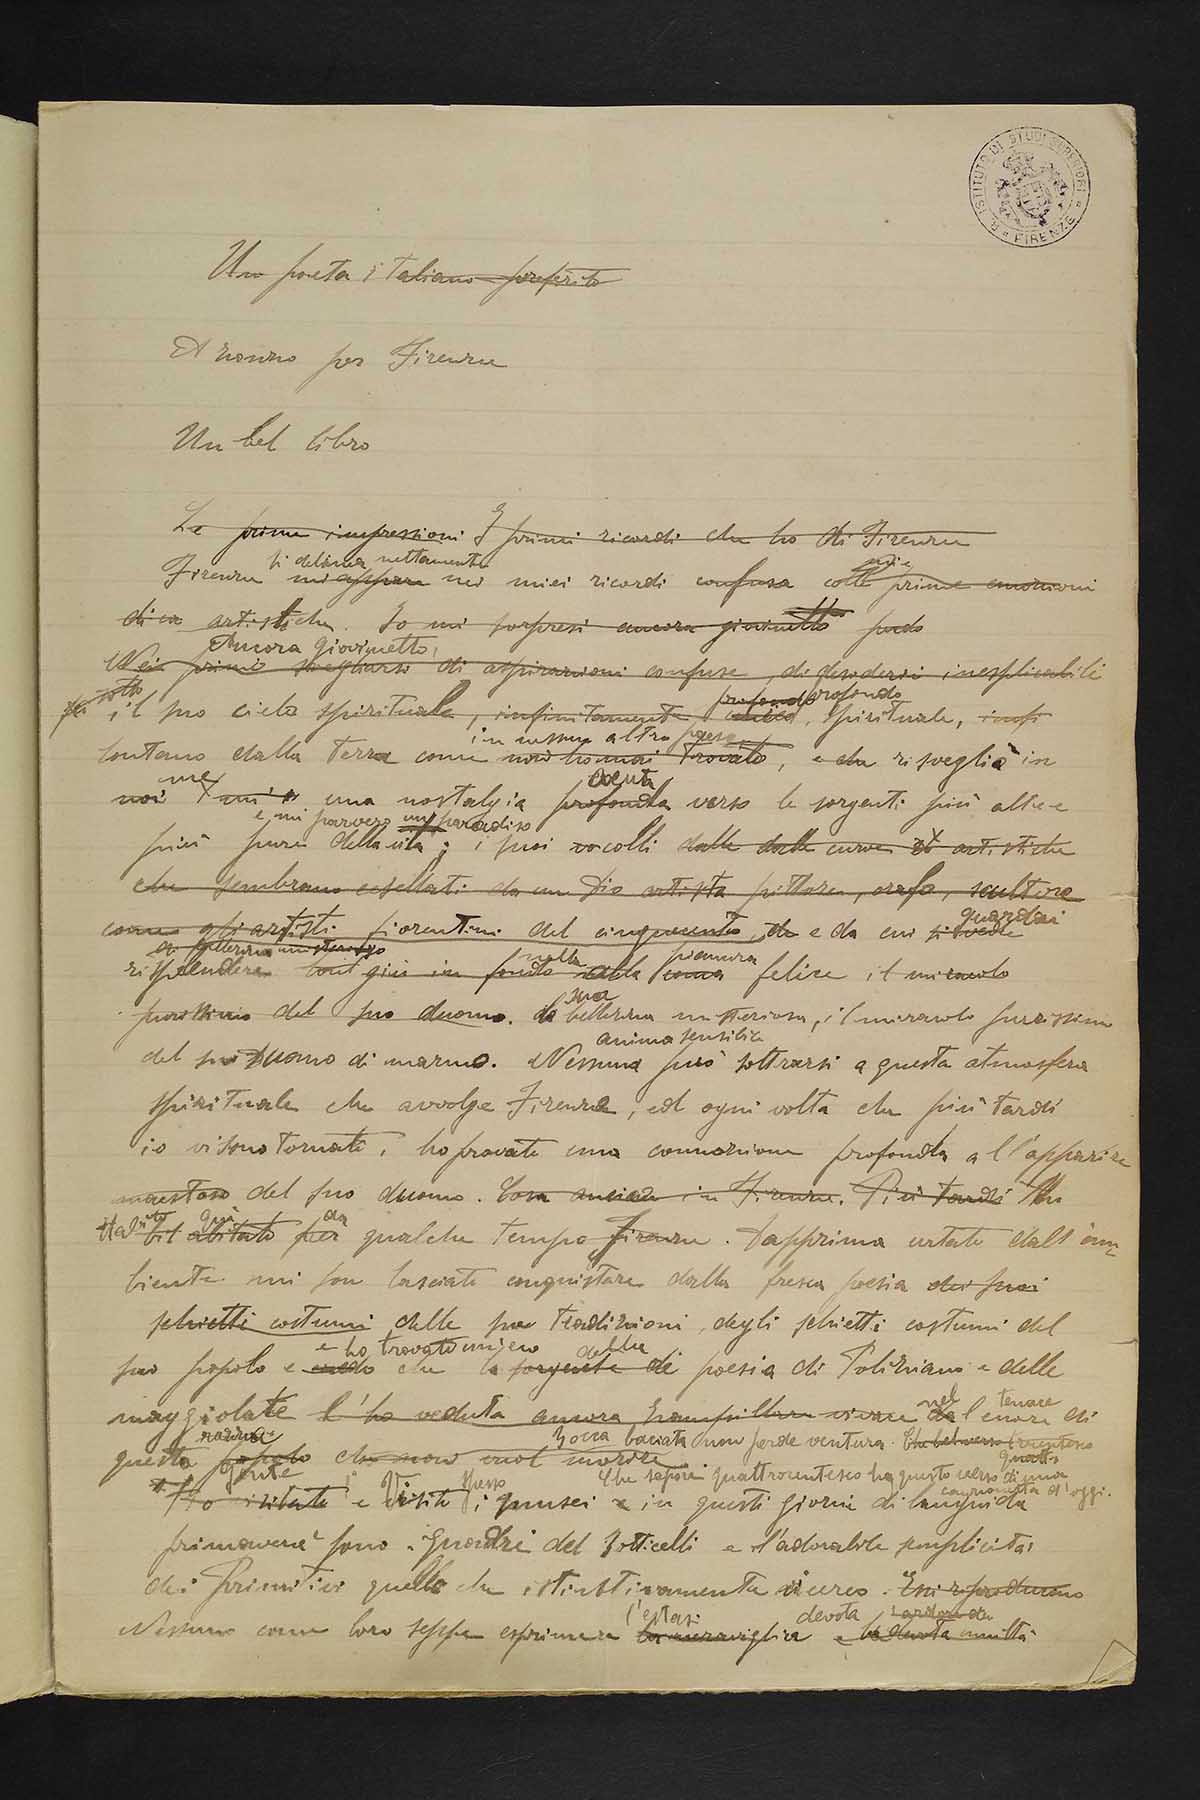 R. ISTITUTO DI STUDI SUPERIORI FIRENZE
Un poeta italiano preferito
A zonzo per Firenze
Un bel libro
Le prime impressioni I primi ricordi che ho di Firenze
si delinea nettamente mie
Firenze mi appare nei miei ricordi confusa colle prime emozioni
artistiche. Io mi sorpresi ancora giovinetto
Ancora giovinetto,
Nei primo svegliarsi di aspirazioni confuse, di desideri inesplicabili
sotto profondo profondo
il suo cielo spirituale, infinitamente unico, spirituale,
in nessun altro paese
lontano dalla terra come non ho mai trovato, e che risvegliò in
me acuta
noi una nostalgia profonda verso le sorgenti più alte e
e mi parvero un paradiso
più pure della vita; i suoi colli dalle dalle curve artistiche
che sembrano cesellati da un Dio artista pittore, orafo, scultore
come gli artisti fiorentini del cinquecento, e da cui si vede
guardai
di bellezza misterioso nella pianura
risplendere giù in fondo nella conca felice il miracolo
purissimo del suo duomo. la bellezza misteriosa, il miracolo purissimo
sua
anima sensibile
del suo duomo di marmo. Nessuna può sottrarsi a questa atmosfera
spirituale che avvolge Firenze, ed ogni volta che più tardi
io vi sono tornato, ho provato una commozione profonda all'apparire
maestoso del suo duomo. in Firenze. Più tardi Ho
qui da
abitato per qualche tempo Firenze. Dapprima urtato dall'am
biente mi son lasciato conquistare dalla fresca poesia dei suoi
schietti costumi delle sue tradizioni, degli schietti costumi del
e ho trovato della
suo popolo e credo che la sorgente di poesia di Poliziano e delle
nel tenace
maggiolate l'ho veduta ancora zampillare vivace dal cuore di
razza Bocca baciata non perde ventura. Che bel verso
questo popolo che non vuol morire
gente spesso Che sapore quattrocentesco ha questo verso di una
canzonetta d'oggi.
Ho visitato e visito i musei e in questi giorni di languida
primavera sono i quadri del Botticelli e l'adorabile semplicità
dei Primitivi quello che istintivamente ricerco. Essi riproducono
l'estasi devota
Nessuno come loro seppe esprimere la meraviglia e la devota umiltà